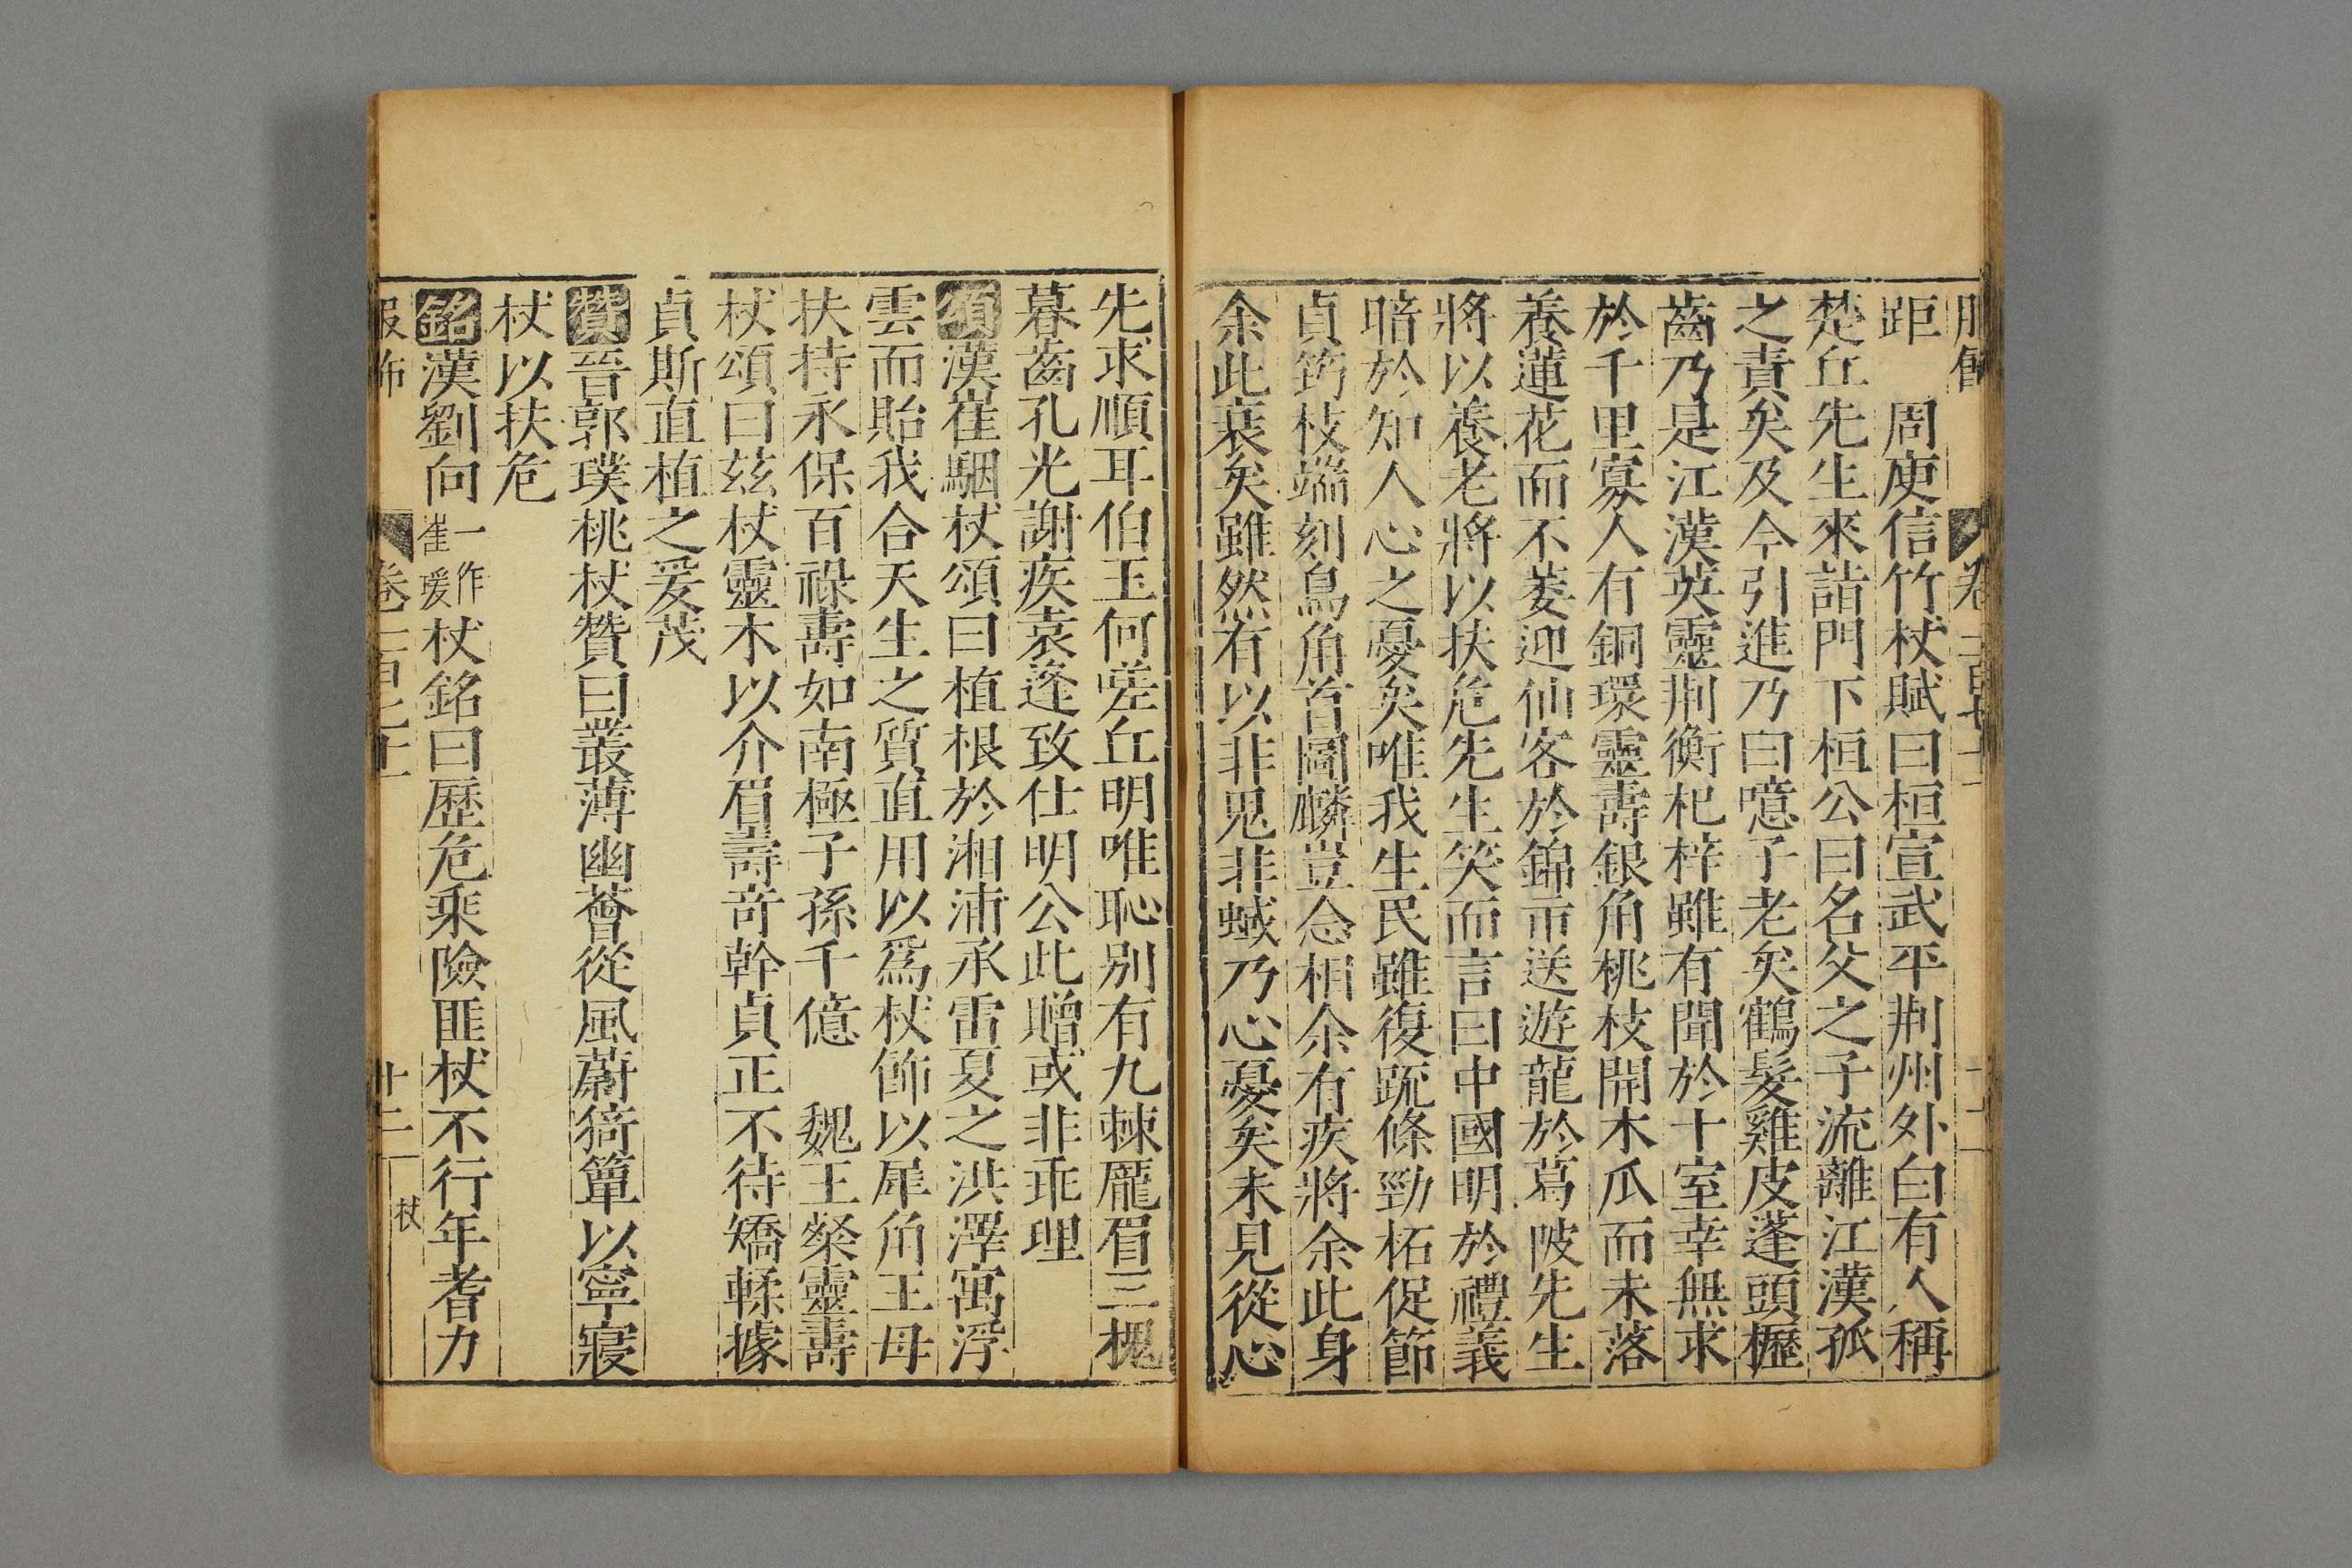 距　周庾信竹杖賦曰桓宣武平荆州外白有人稱
楚丘先生來詣門下桓公曰名父之子流離江漢孤
之責矣及今引進乃曰噫子老矣鶴髮雞皮蓬頭櫪
齒乃是江漢英靈荆衡杞梓雖有聞於十室幸無求
於千里寡人有銅環靈壽銀角桃枝開木瓜而未落
養蓮花而不萎迎仙客於錦市送遊龍於葛陂先生
將以養老將以扶危先生笑而言曰中國明於禮義
暗於知人心之憂矣唯我生民雖復疏條勁柘促節
貞筠枝端刻鳥角首圖麟豈念相余有疾將余此身
余此衰矣雖然有以非鬼非蜮乃心憂矣未見從心
先求順耳伯玉何嗟丘明唯恥别有九棘厖眉三槐
暮齒孔光謝疾袁逢致仕明公此贈或非乖理
頌漢崔駰杖頌曰植根於湘浦承雷夏之洪澤寓浮
雲而貽我合天生之質直用以爲杖飾以犀角王母
扶持永保百祿壽如南極子孫千億　魏王粲靈壽
杖頌曰兹杖靈木以介眉壽奇幹貞正不待矯輮據
貞斯直植之爰茂
贊晉郭璞桃杖贊曰叢薄幽薈從風蔚猗簟以寧寢
杖以扶危
銘漢劉向一作崔瑗杖銘曰歷危乘險匪杖不行年耆力
卷二百七十一
十二
杖